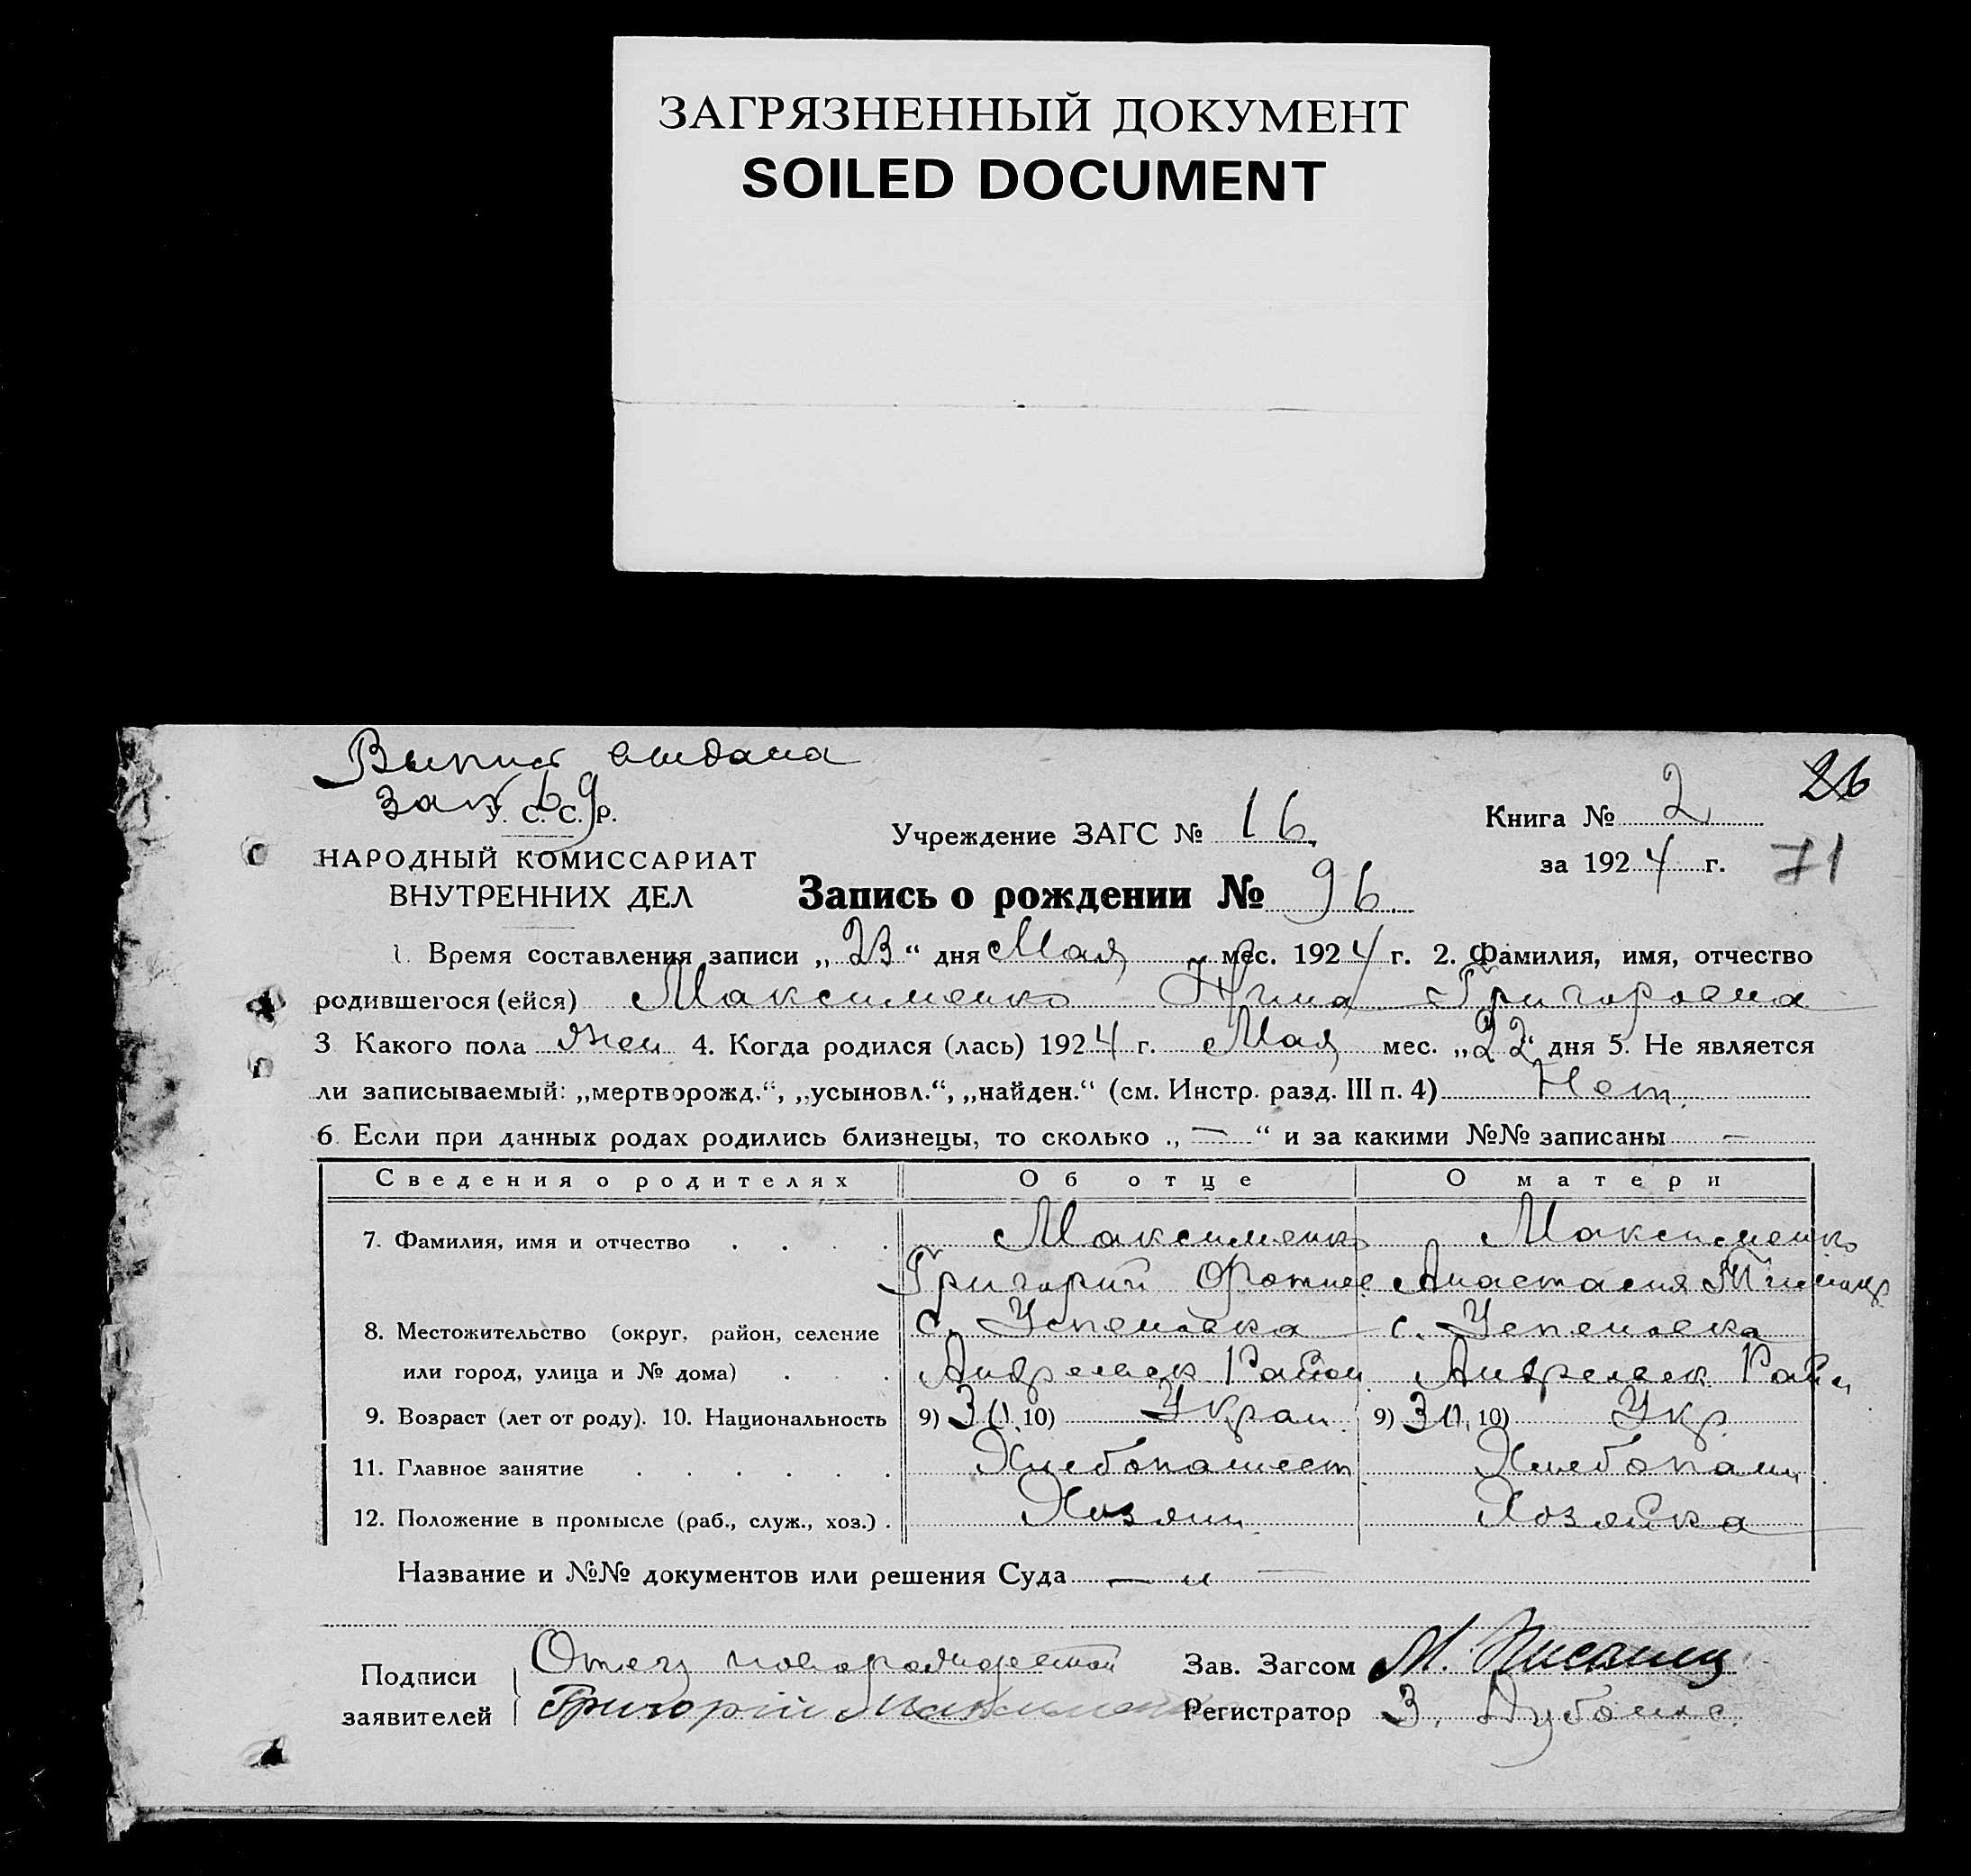 ЗАГРЯЗНЕННЫЙ ДОКУМЕНТ
SOILED DOCUMENT
Выпись выдана
У. С. С. Р.
26
Учреждение ЗАГС № 16
Книга № 2
НАРОДНЫЙ КОМИССАРИАТ
за 1924 г.
71
ВНУТРЕННИХ ДЕЛ
Запись о рождении № 96
1. Время составления записи „23“ дня Мая мес. 1924 г. 2. Фамилия, имя, отчество
родившегося (ейся) Максименко Нина Григоровна
3 Какого пола жен 4. Когда родился (лась) 1924 г. Мая мес. „22“ дня 5. Не является
ли записываемый: „мертворожд.“, „усыновл.“, „найден.“ (см. Инстр. разд. III п. 4) Нет.
6 Если при данных родах родились близнецы, то сколько „—“ и за какими №№ записаны —
Сведения о родителях Об отце О матери
7. Фамилия, имя и отчество Максименко Максименко
Григорий Анастасия
8. Местожительство (округ, район, селение с. Успеновка с. Успеновка
или город, улица и № дома) Район Район
9. Возраст (лет от роду). 10. Национальность 9) 30 10) Украин 9) 30, 10) Укр
11. Главное занятие Хлебопашест Хлебопаш
12. Положение в промысле (раб., служ., хоз.) Хозяин Хозяйка
Название и №№ документов или решения Суда — „ —
Подписи заявителей Отец новорожденной Зав. Загсом М.
Григорій Максименко Регистратор З.